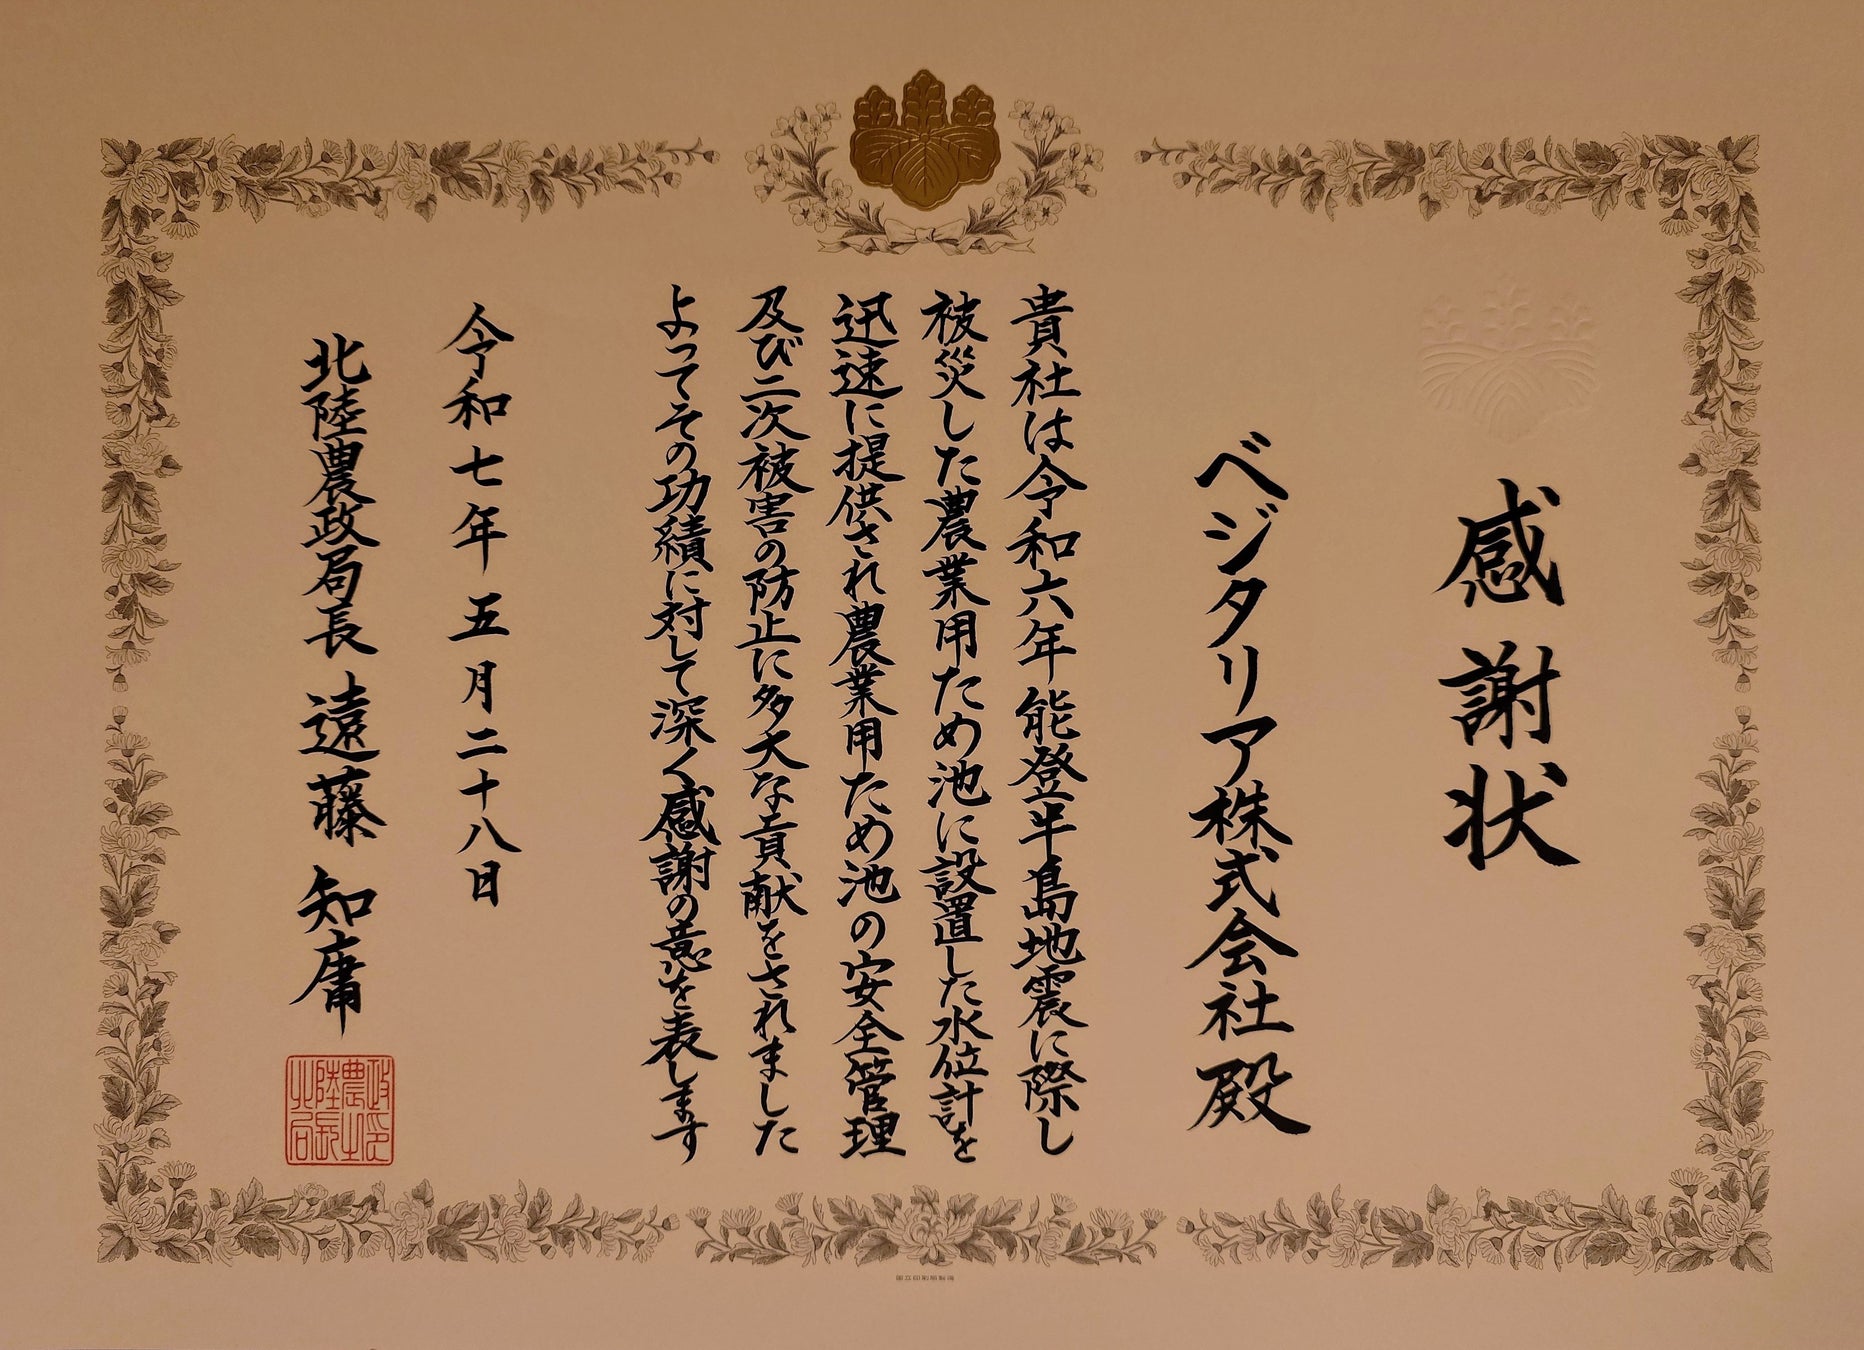 感謝状
ベジタリア株式会社殿
貴社は令和六年能登半島地震に際し
被災した農業用ため池に設置した水位計を
迅速に提供され農業用ため池の安全管理
及び二次被害の防止に多大な貢献をされました
よってその功績に対して深く感謝の意を表します
令和七年五月二十八日
北陸農政局長 遠藤知庸
北陸農政局長之印
国立印刷局製造